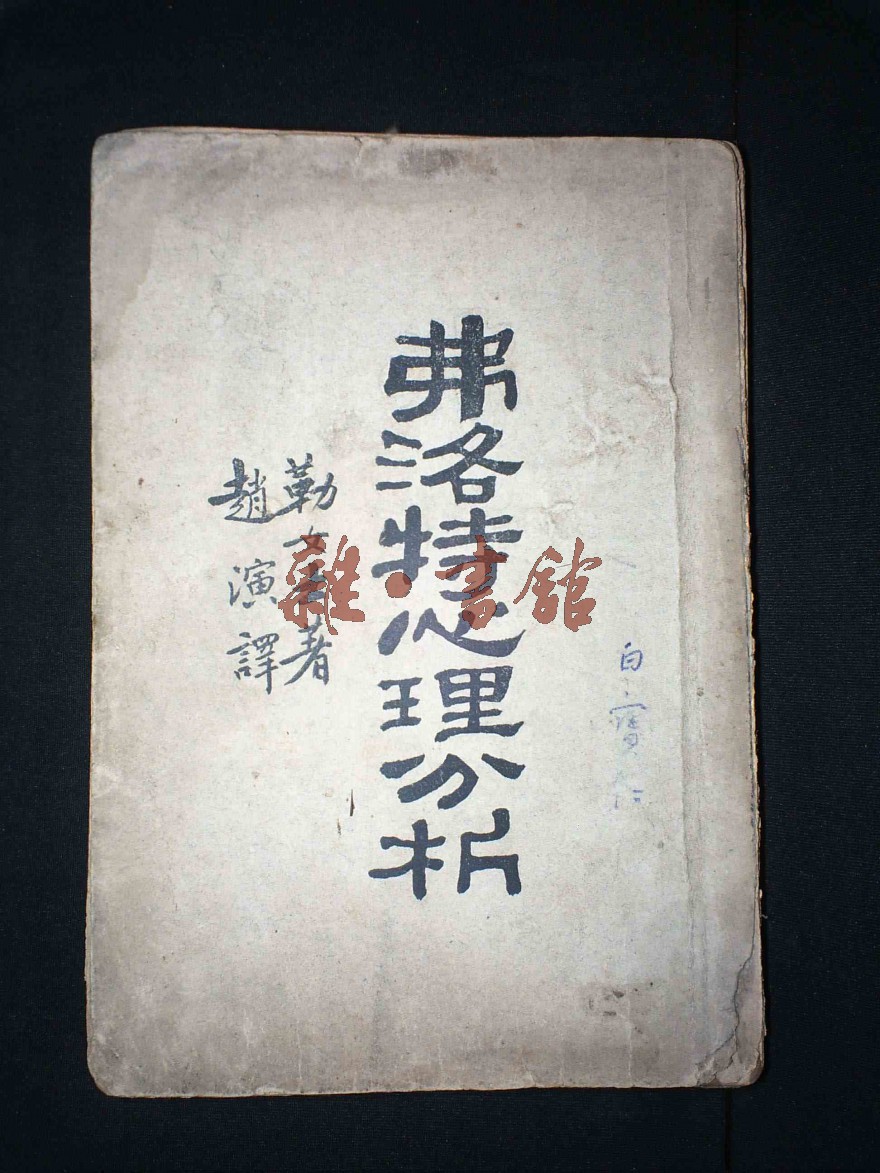 弗洛特心理分析
勒女士著
趙演譯
雜·書館
白